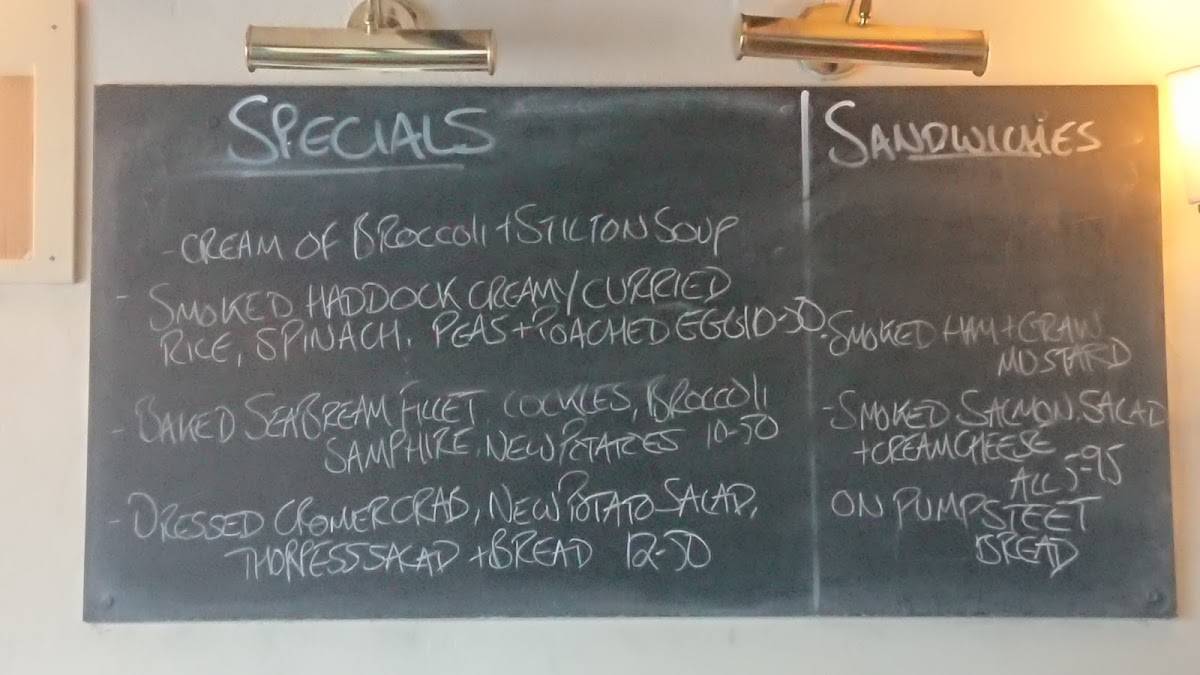 SPECIALS
- CREAM OF BROCCOLI + STILTON SOUP
- SMOKED HADDOCK CREAMY/CURRIED
RICE, SPINACH, PEAS + POACHED EGG 10-50
- BAKED SEABREAM FILLET, COCKLES, BROCCOLI
SAMPHIRE, NEW POTATOES 10-50
- DRESSED CROMER CRAB, NEW POTATO SALAD,
SALAD + BREAD 12-50
SANDWICHES
- SMOKED HAM + GRAIN
MUSTARD
- SMOKED SALMON, SALAD
+ CREAM CHEESE
ALL 5-95
ON PUMPSTEET
BREAD